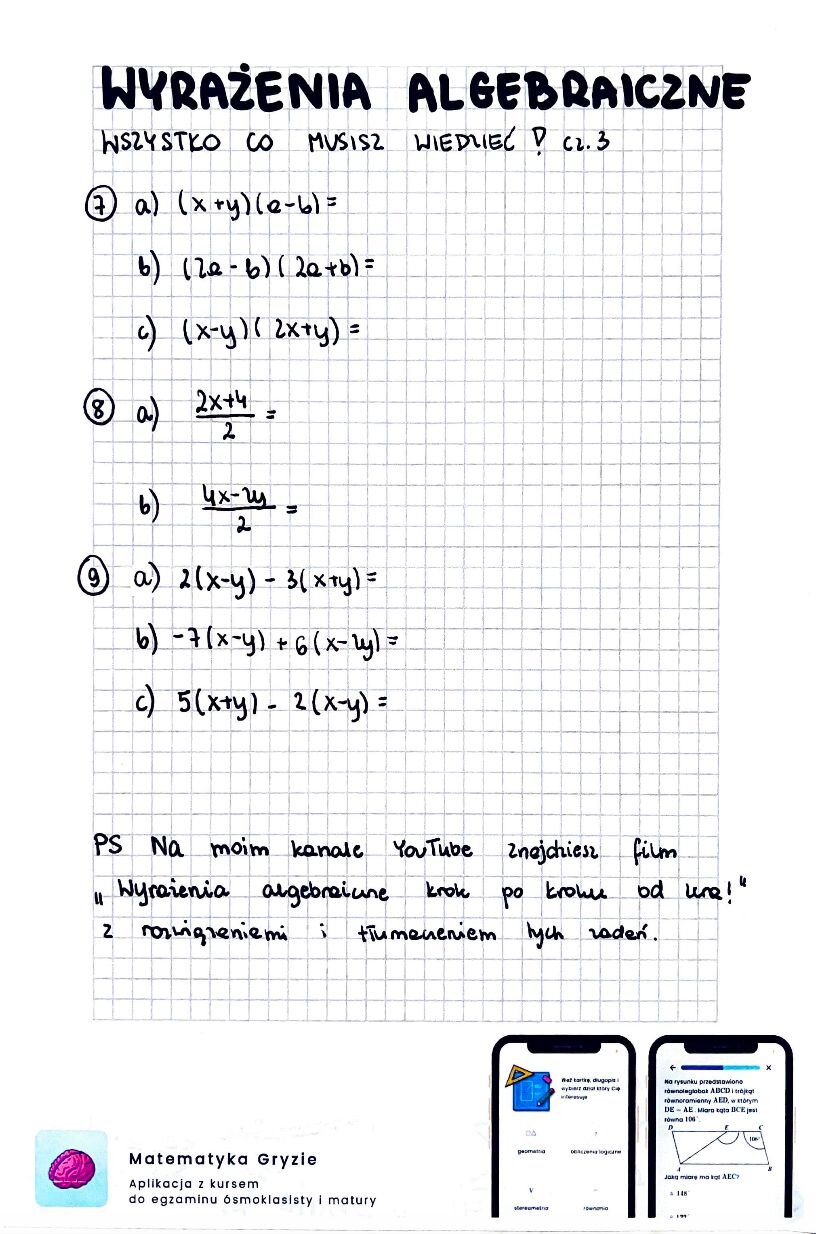 WYRAŻENIA ALGEBRAICZNE
WSZYSTKO CO MUSISZ WIEDZIEĆ! cz. 3
7 a) (x+y)(a-b)=
b) (2a-b)(2a+b)=
c) (x-y)(2x+y)=
8 a) \frac{2x+4}{2} =
b) \frac{4x-2y}{2} =
9 a) 2(x-y) - 3(x+y)=
b) -7(x-y) + 6(x-2y)=
c) 5(x+y) - 2(x-y)=
PS Na moim kanale YouTube znajdziesz film
„Wyrażenia algebraiczne krok po kroku od zera!"
z rozwiązaniami i tłumaczeniem tych zadań.
Matematyka Gryzie
Aplikacja z kursem
do egzaminu ósmoklasisty i matury
Weź kartkę, długopis i
wybierz dział który Cię
interesuje
geometria
obliczenia logiczne
stereometria
równania
Na rysunku przedstawiono
równoległobok ABCD i trójkąt
równoramienny AED, w którym
DE = AE. Miara kąta BCE jest
równa 106°.
D E C
106°
A B
Jaką miarę ma kąt AEC?
148°